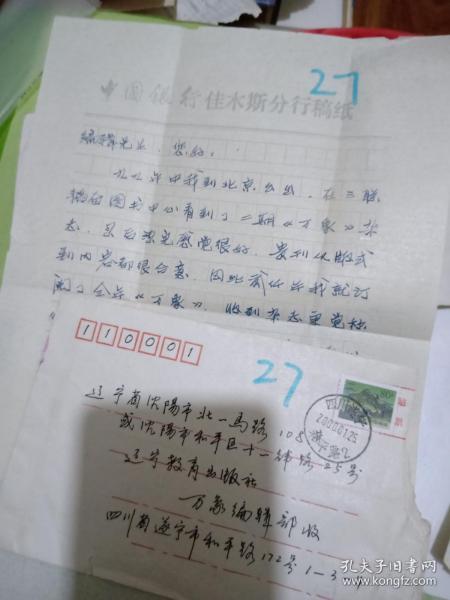 27
中国银行佳木斯分行稿纸
编辑先生，您好。
九九年中我到北京出差，在三联
韬奋图书中心看到了二期《万象》杂
志，
到内容都很合意，因此
阅了全年《万象》，收到杂志
110001
27
辽宁省沈阳市北一马路108
或沈阳市和平区十一纬路25号
辽宁教育出版社
万象编辑部收
四川省遂宁市和平路172号1-3
四川
2000.01.25
遂宁
孔夫子旧书网